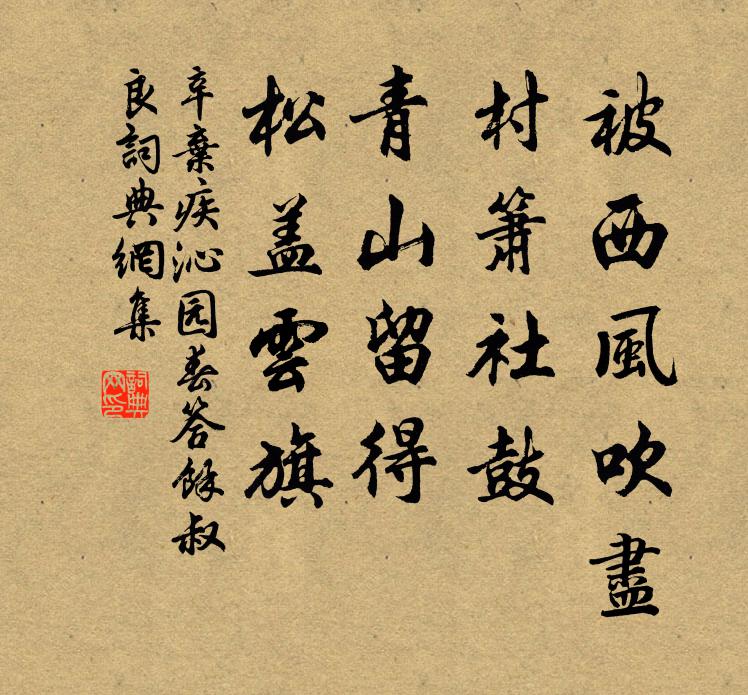 被西風吹盡
村簫社鼓
青山留得
松盖雲旗
辛棄疾沁园春答餘叔
良詞典網集
詞典
网印